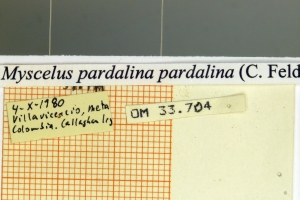 Myscelus pardalina pardalina (C. Feld
4-X-1980
Villavicencio, Meta
Colombia. Callaghan leg
OM 33.704